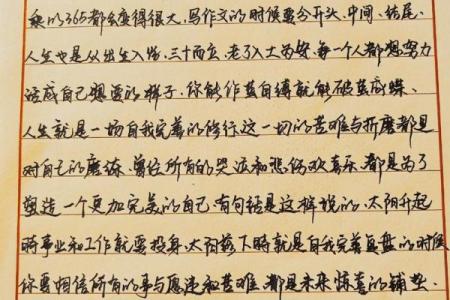 乘以365都会变得很大，写作文的时候要分开头、中间、结尾。
人生也是从出生入学，三十而立，老了入土为安，每一个人都想努力
活成自己想要的样子，你能作茧自缚就能破茧成蝶。
人生就是一场自我完善的修行这一切的苦难与折磨都是
对自己的磨练，曾经所有的哭泣和悲伤欢喜乐，都是为了
塑造一个更加完美的自己，有句话是这样说的，太阳升起
时事业和工作就要投身，太阳落下时就是自我完善复盘的时候，
你要相信所有的事与愿违和苦难，都是未来惊喜的铺垫。